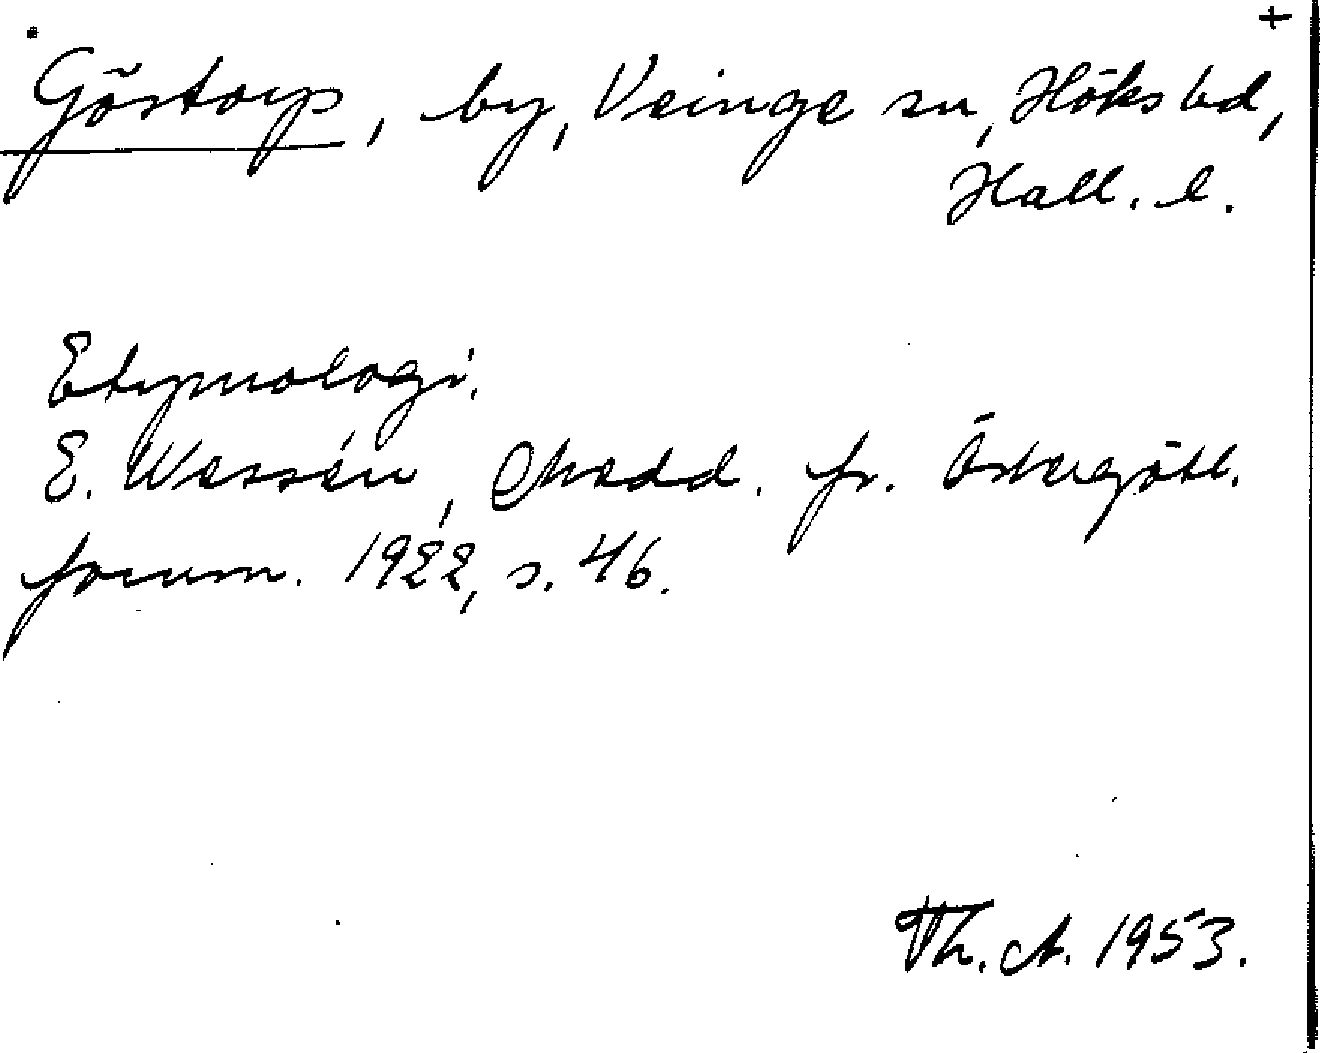 +
Göstorp, by, Veinge sn, Höks hd,
Hall. l.
Etymologi.
E. Wessén, Medd. fr. Östergötl.
fornm. 1922, s. 46.
Th. A. 1953.